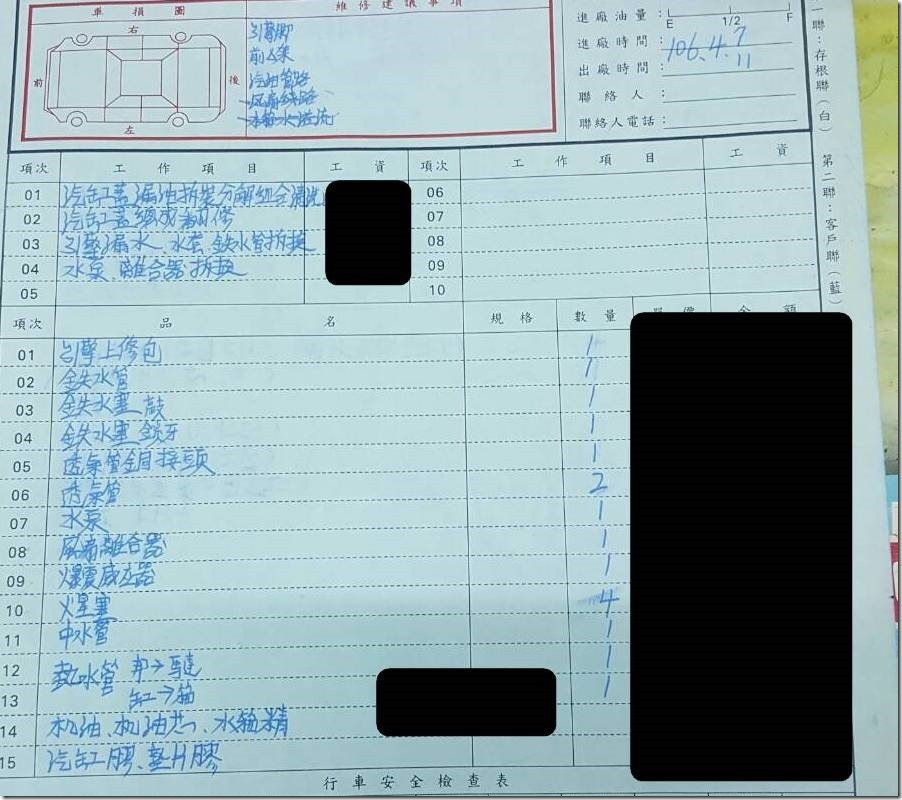 車損圖
維修建議事項
右
前
後
左
引擎腳
前A架
汽油管路
風扇線路
水箱水溢流
進廠油量：
E 1/2 F
進廠時間：106.4.7
出廠時間：11
聯絡人：
聯絡人電話：
一聯：存根聯（白）
第二聯：客戶聯（藍）
項次 工作項目 工資 項次 工作項目 工資
01 汽缸蓋漏油拆裝分解組合清洗 06
02 汽缸蓋總成翻修 07
03 引擎漏水、水管、鉄水管拆換 08
04 水泵、離合器拆換 09
05 10
項次 品名 規格 數量
01 引擎上修包 1
02 鉄水管 1
03 鉄水塞 敲 1
04 鉄水塞 鎖牙 1
05 透氣管 接頭 1
06 透氣管 2
07 水泵 1
08 風扇離合器 1
09 爆震感应器 1
10 火星塞 4
11 中水管 1
12 熱水管 1
13 缸→箱 1
14 机油、机油芯、水箱精
15 汽缸膠、墊片膠
行車安全檢查表